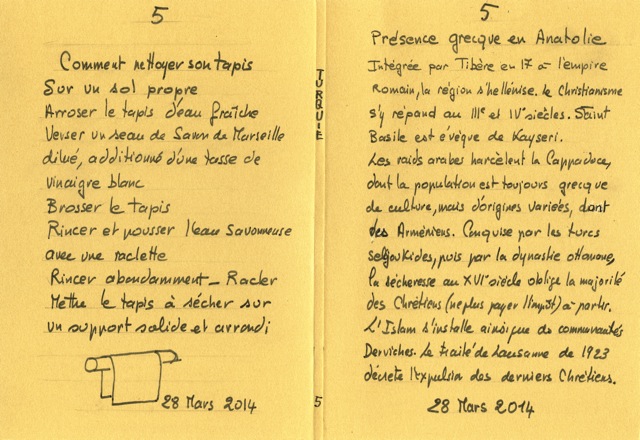 5
Comment nettoyer son tapis
Sur un sol propre
Arroser le tapis d'eau fraîche
Verser un seau de Savon de Marseille
dilué, additionné d'une tasse de
vinaigre blanc
Brosser le tapis
Rincer et pousser l'eau savonneuse
avec une raclette
Rincer abondamment - Racler
Mettre le tapis à sécher sur
un support solide et arrondi
28 Mars 2014
TURQUIE
5
5
Présence grecque en Anatolie
Intégrée par Tibère en 17 à l'empire
Romain, la région s'hellénise. le Christianisme
s'y répand au IIIe et IVe siècles. Saint
Basile est évêque de Kayseri.
Les raids arabes harcèlent la Cappadoce,
dont la population est toujours grecque
de culture, mais d'origines variées, dont
des Arméniens. Conquise par les turcs
seldjoukides, puis par la dynastie ottomane,
la sécheresse au XVIe siècle oblige la majorité
des Chrétiens (ne plus payer l'impôt) à partir.
L'Islam s'installe ainsi que des communautés
Derviches. Le traité de Lausanne de 1923
décrète l'expulsion des derniers Chrétiens.
28 Mars 2014